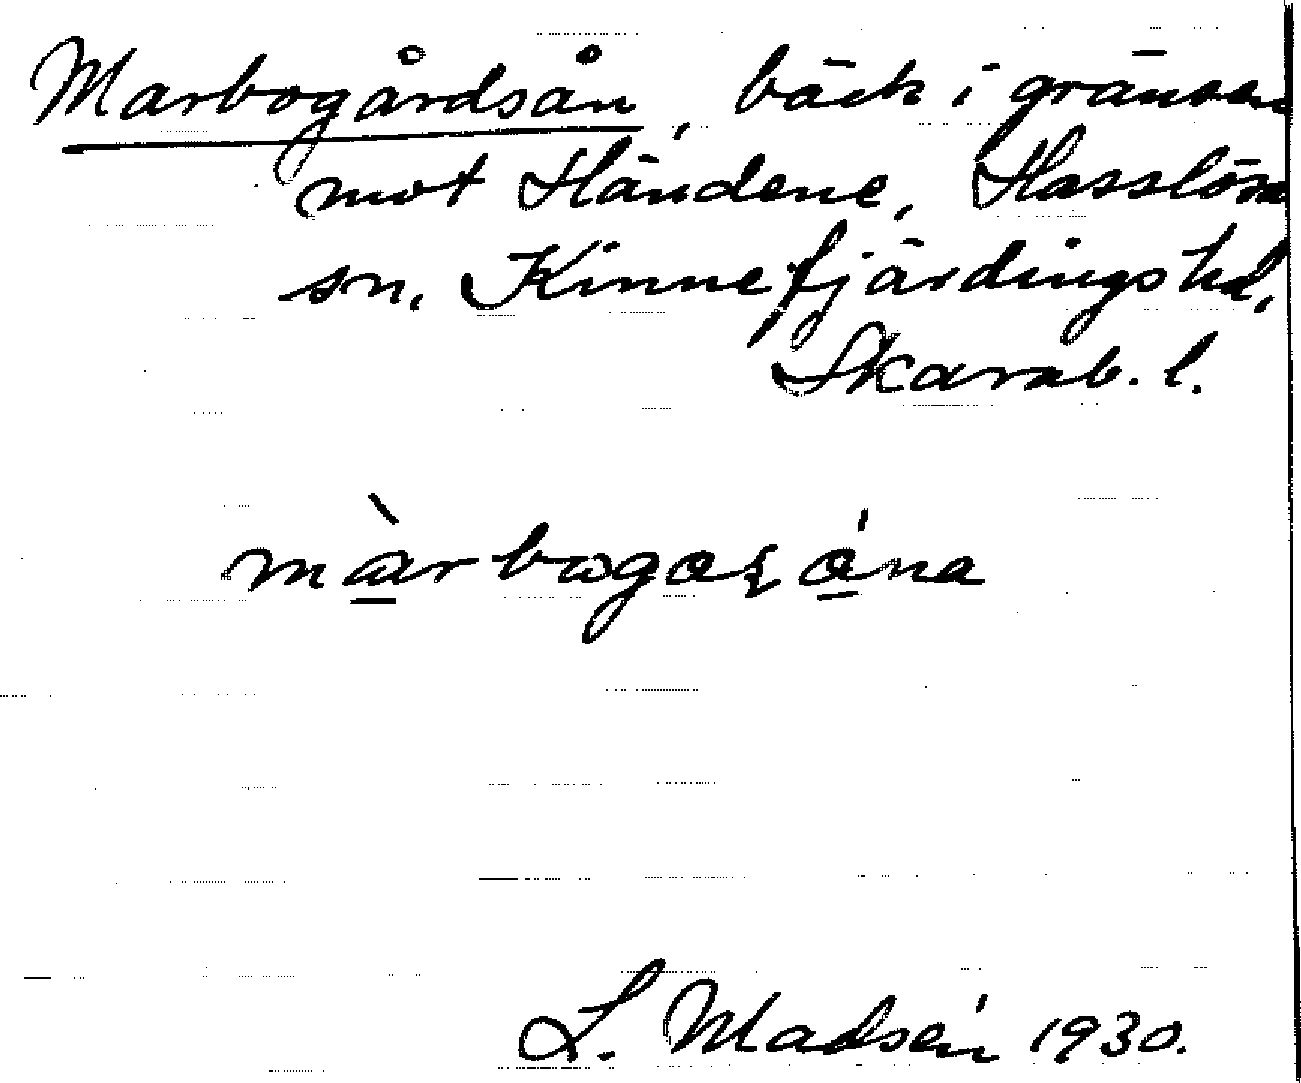 Marbogårdsån, bäck i gränsen
mot Händene, Hasslösa
sn, Kinnefjärdings hd,
Skarab. l.
L. Madsén 1930.